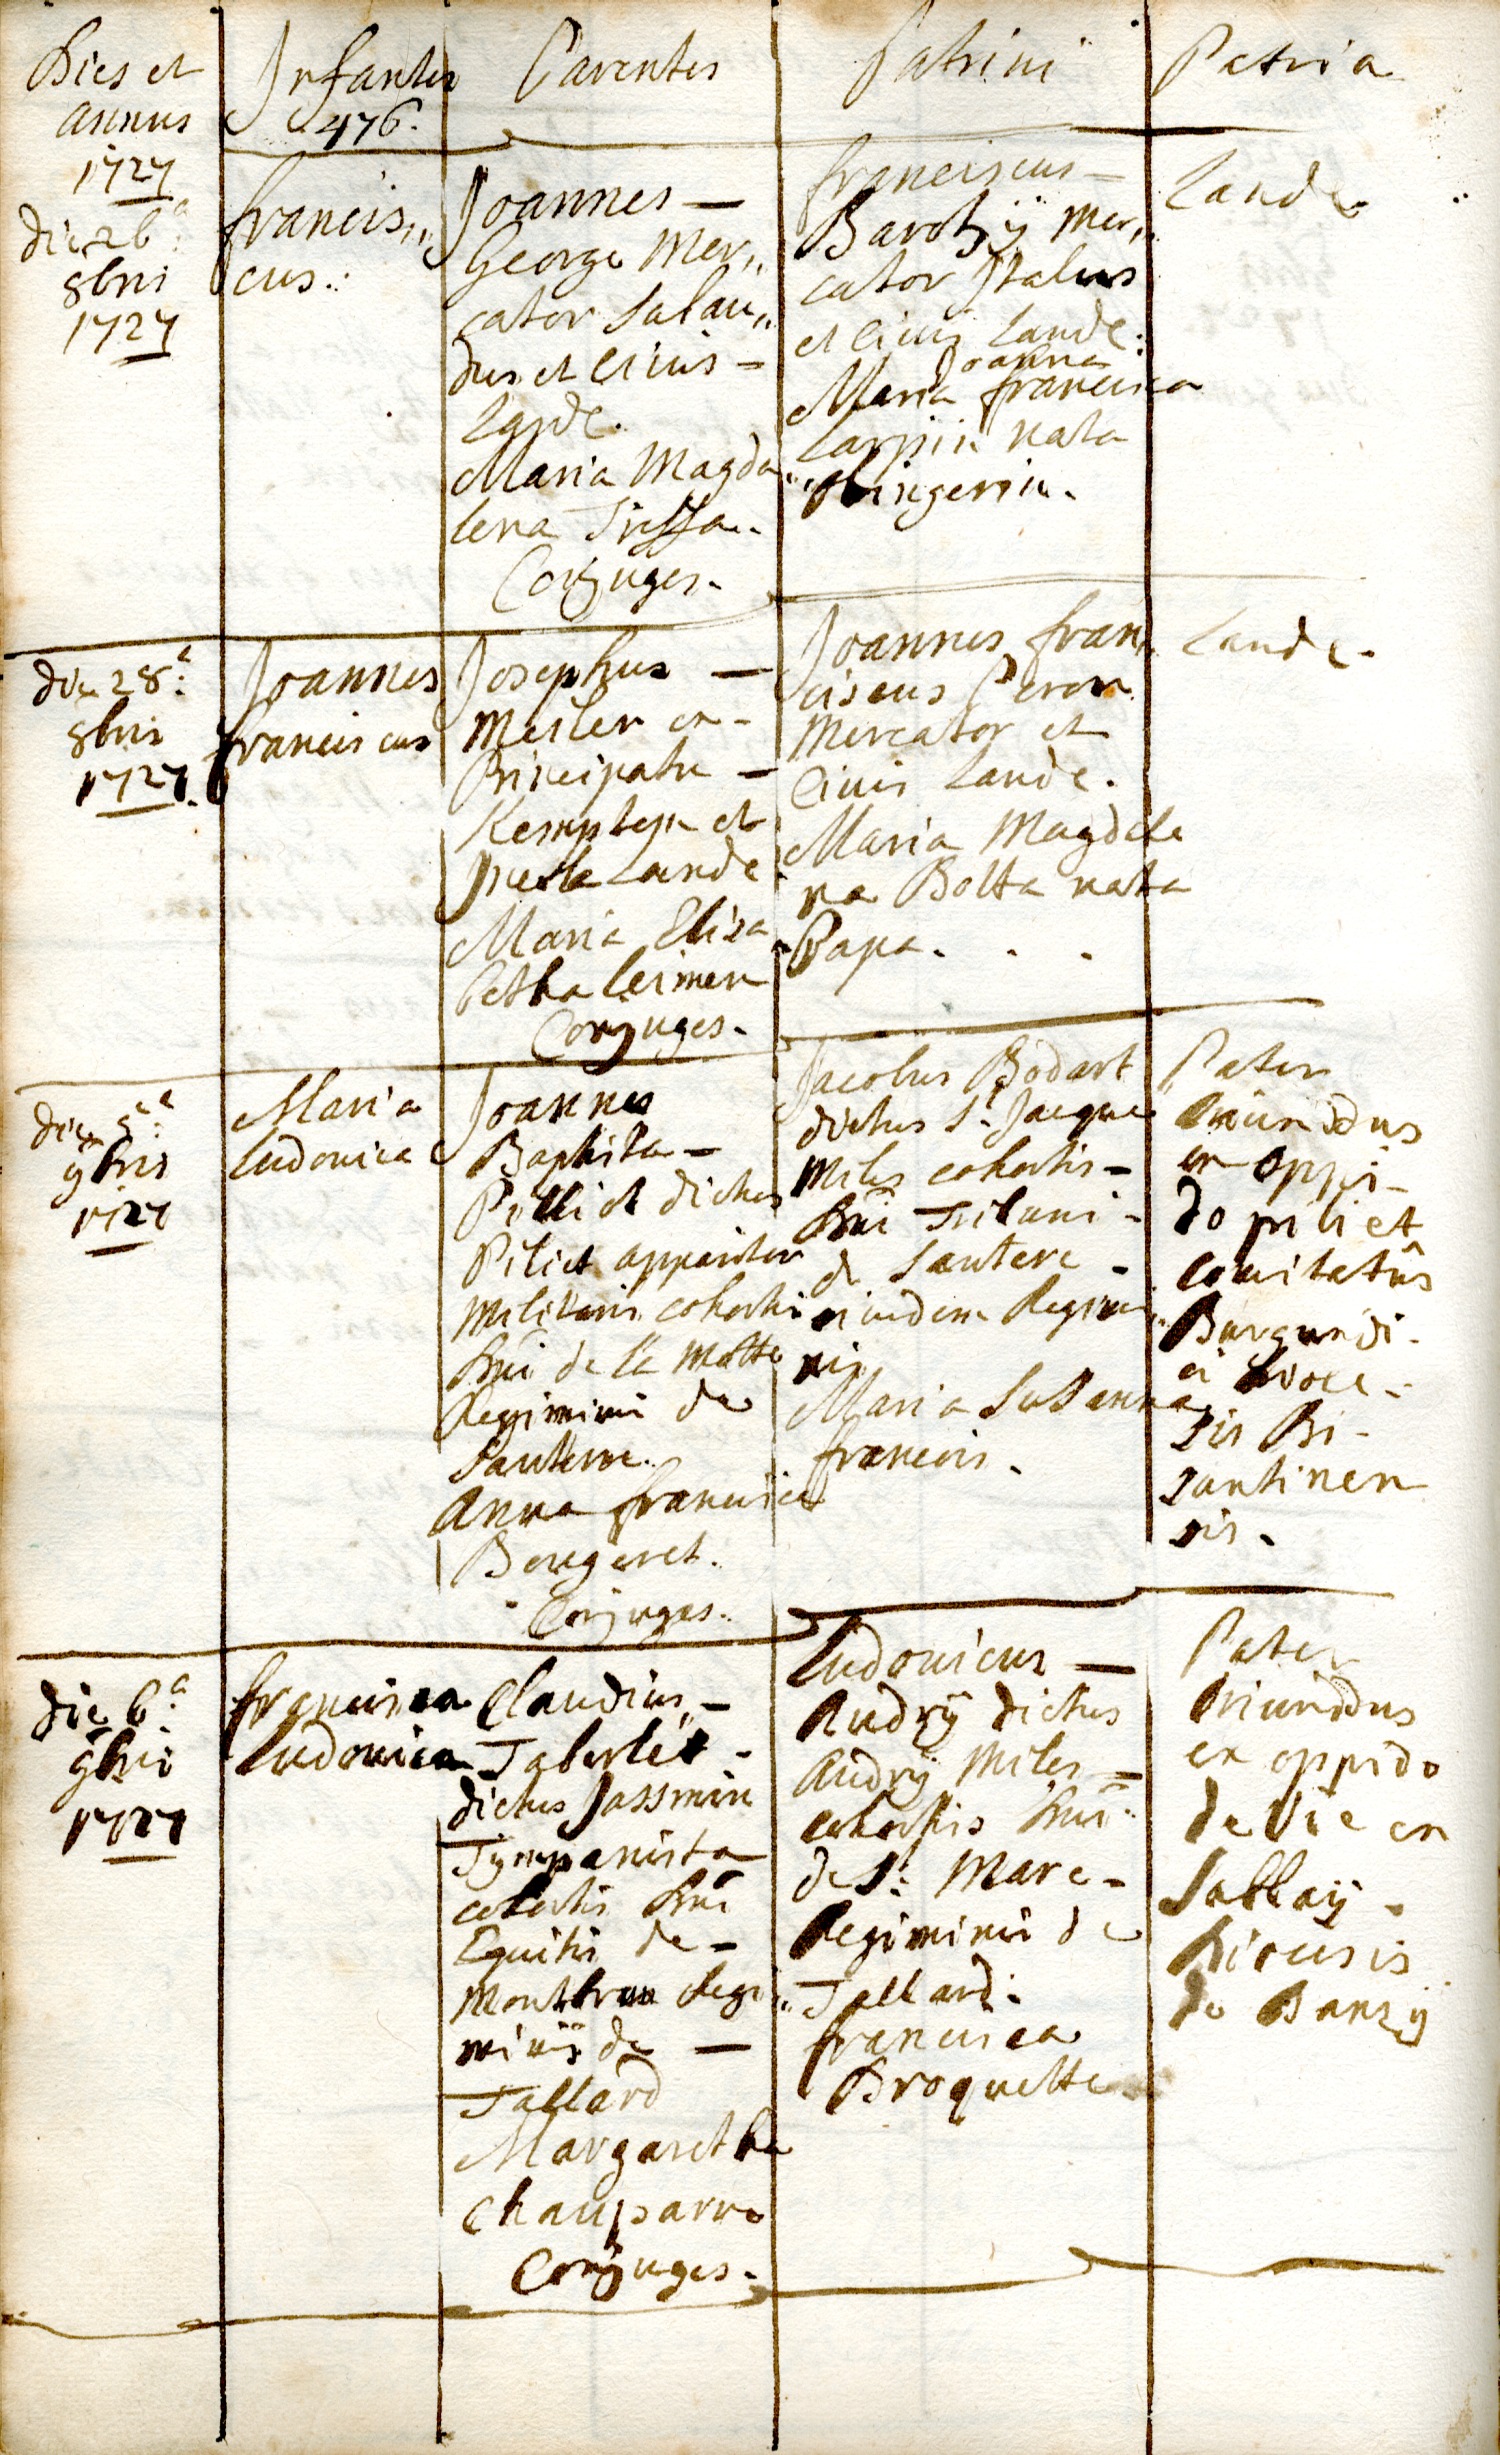 Dies et
annus
1727
Infantes
476.
Parentes
Patrini
Patria
die 26.a
8bris
1727
francis„
cus.
Joannes —
George Mer„
cator Sabau„
dus et Civis —
Landæ.
Maria Magda„
lena
Conjuges.
franciscus —
mer„
cator Italus
et Civis Landæ.
Joanna
Maria francisca
nata
Landæ
die 28.a
8bris
1727.
Joannes
franciscus
Josephus —
Mesler ex —
Principatu —
Kempten et
Landæ
Maria Elisa„
betha
Conjuges.
Joannes fran„
ciscus Peron
Mercator et
Civis Landæ.
Maria Magdale
na Bolta nata
Papa . . .
Landæ.
die 5.a
9bris
1727
Maria
Ludovica
Joannes
Baptista —
dictus
Piliet apparitor
Militaris cohortis
Dni de la Motte
Regiminis de
Santerre.
Anna francisca
Bougeret.
Conjuges.
Jacobus Bodart
dictus St. Jacques
Miles cohortis —
Dni Tribuni —
de Santere —
eiusdem Regimi„
nis
Maria Susanna
francois.
Pater
Oriundus
ex oppi-
do
Comitatûs
Burgundi-
æ Dioce-
sis Bi-
suntinen
sis.
die 6.a
9bris
1727
francisca
Ludovica
Claudius —
dictus Jassmin
Tympanista
cohortis Dni
Equitis de —
Montbrun Regi„
minis de —
Tallard
Margaretha
Conjuges.
Ludovicus —
Audrÿ dictus
Audrÿ Miles —
cohortis Dni
de St. Marc —
Regiminis de
Tallard.
francisca
Broquette
Pater
Oriundus
ex oppido
de Vic en
Diocesis